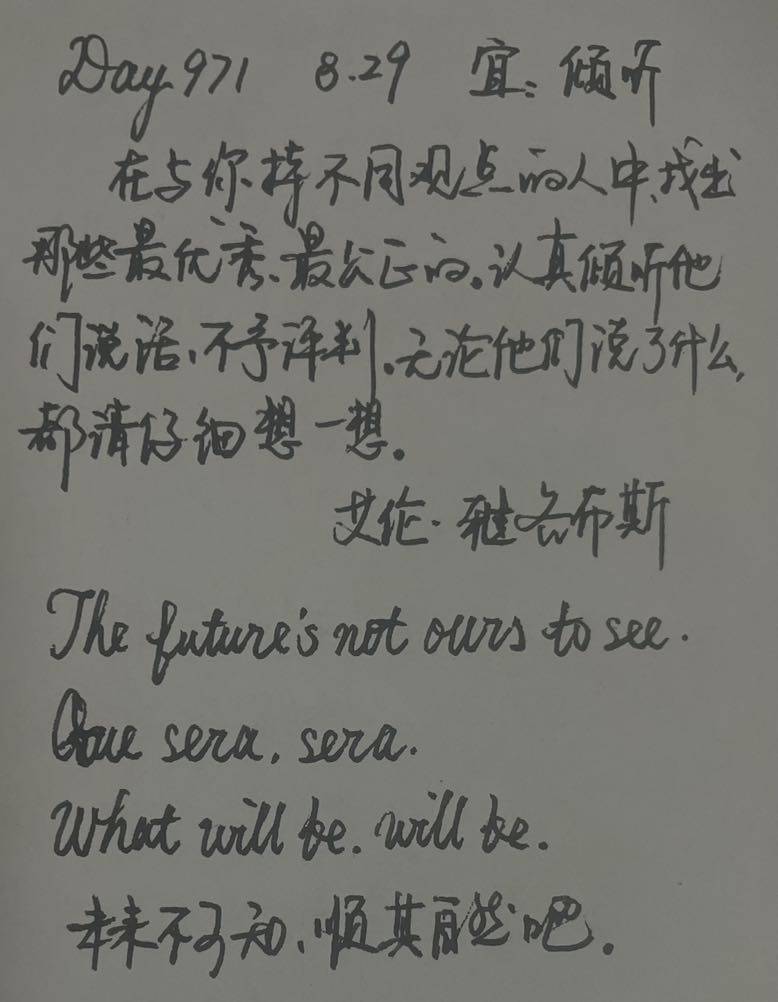 Day 971 8.29 宜：倾听
在与你持不同观点的人中，找出
那些最优秀、最公正的。认真倾听他
们说话，不予评判。无论他们说了什么，
都请仔细想一想。
艾伦·雅各布斯
The future's not ours to see.
Que sera, sera.
What will be. will be.
未来不可知，顺其自然吧。